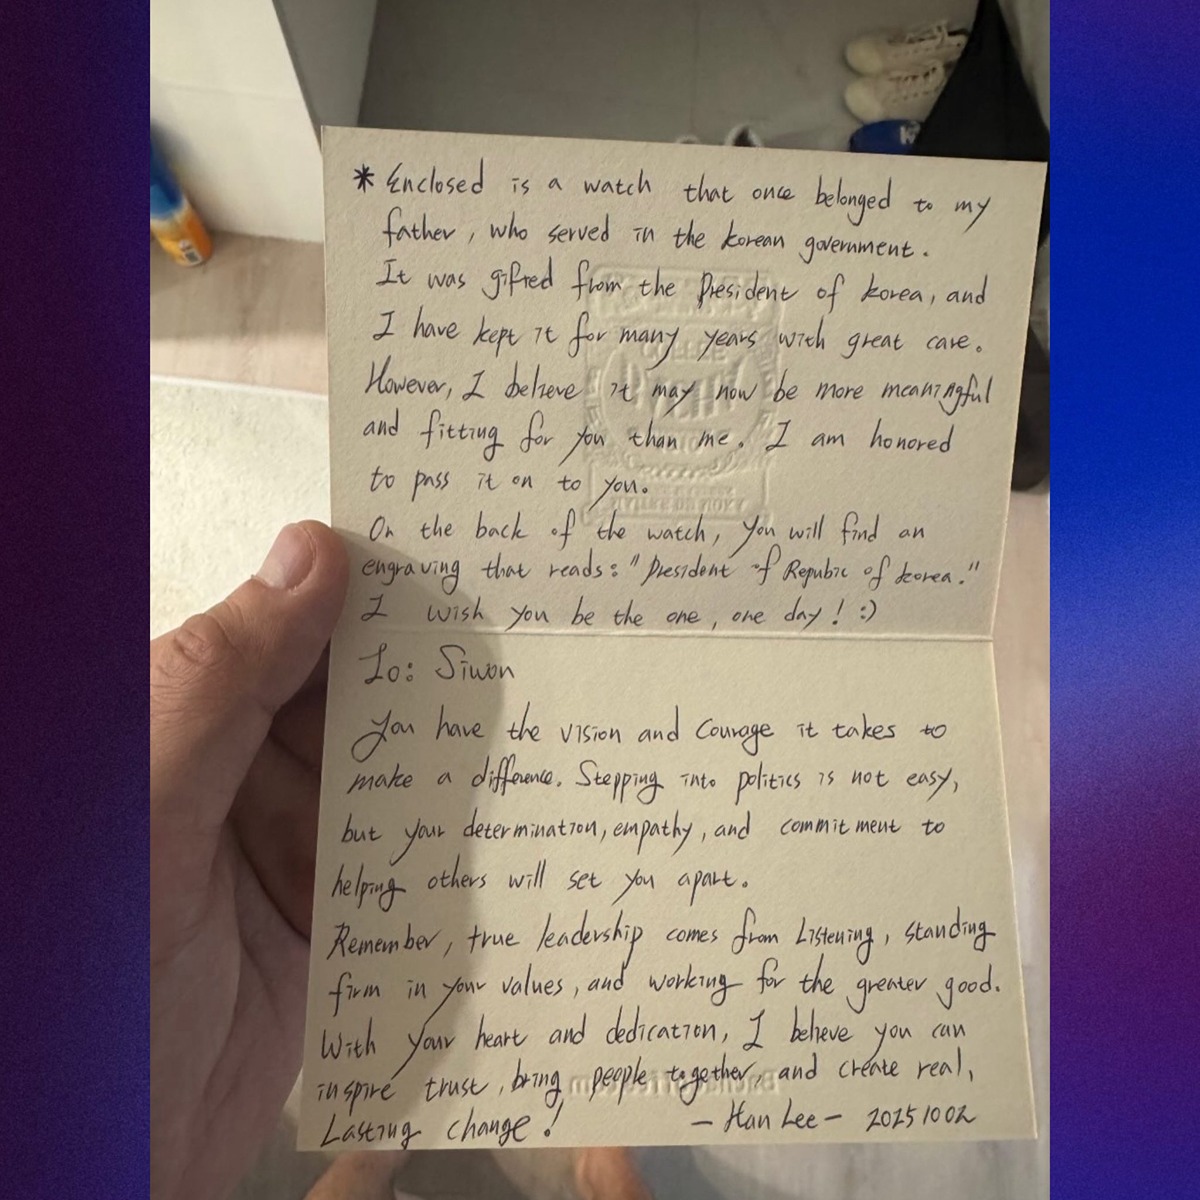 * Enclosed is a watch that once belonged to my
father, who served in the Korean government.
It was gifted from the President of Korea, and
I have kept it for many years with great care.
However, I believe it may now be more meaningful
and fitting for you than me. I am honored
to pass it on to you.
On the back of the watch, you will find an
engraving that reads: "President of Republic of Korea."
I wish you be the one, one day! :)
To: Siwon
You have the vision and courage it takes to
make a difference. Stepping into politics is not easy,
but your determination, empathy, and commitment to
helping others will set you apart.
Remember, true leadership comes from listening, standing
firm in your values, and working for the greater good.
With your heart and dedication, I believe you can
inspire trust, bring people together, and create real,
Lasting change!
- Han Lee - 20251002